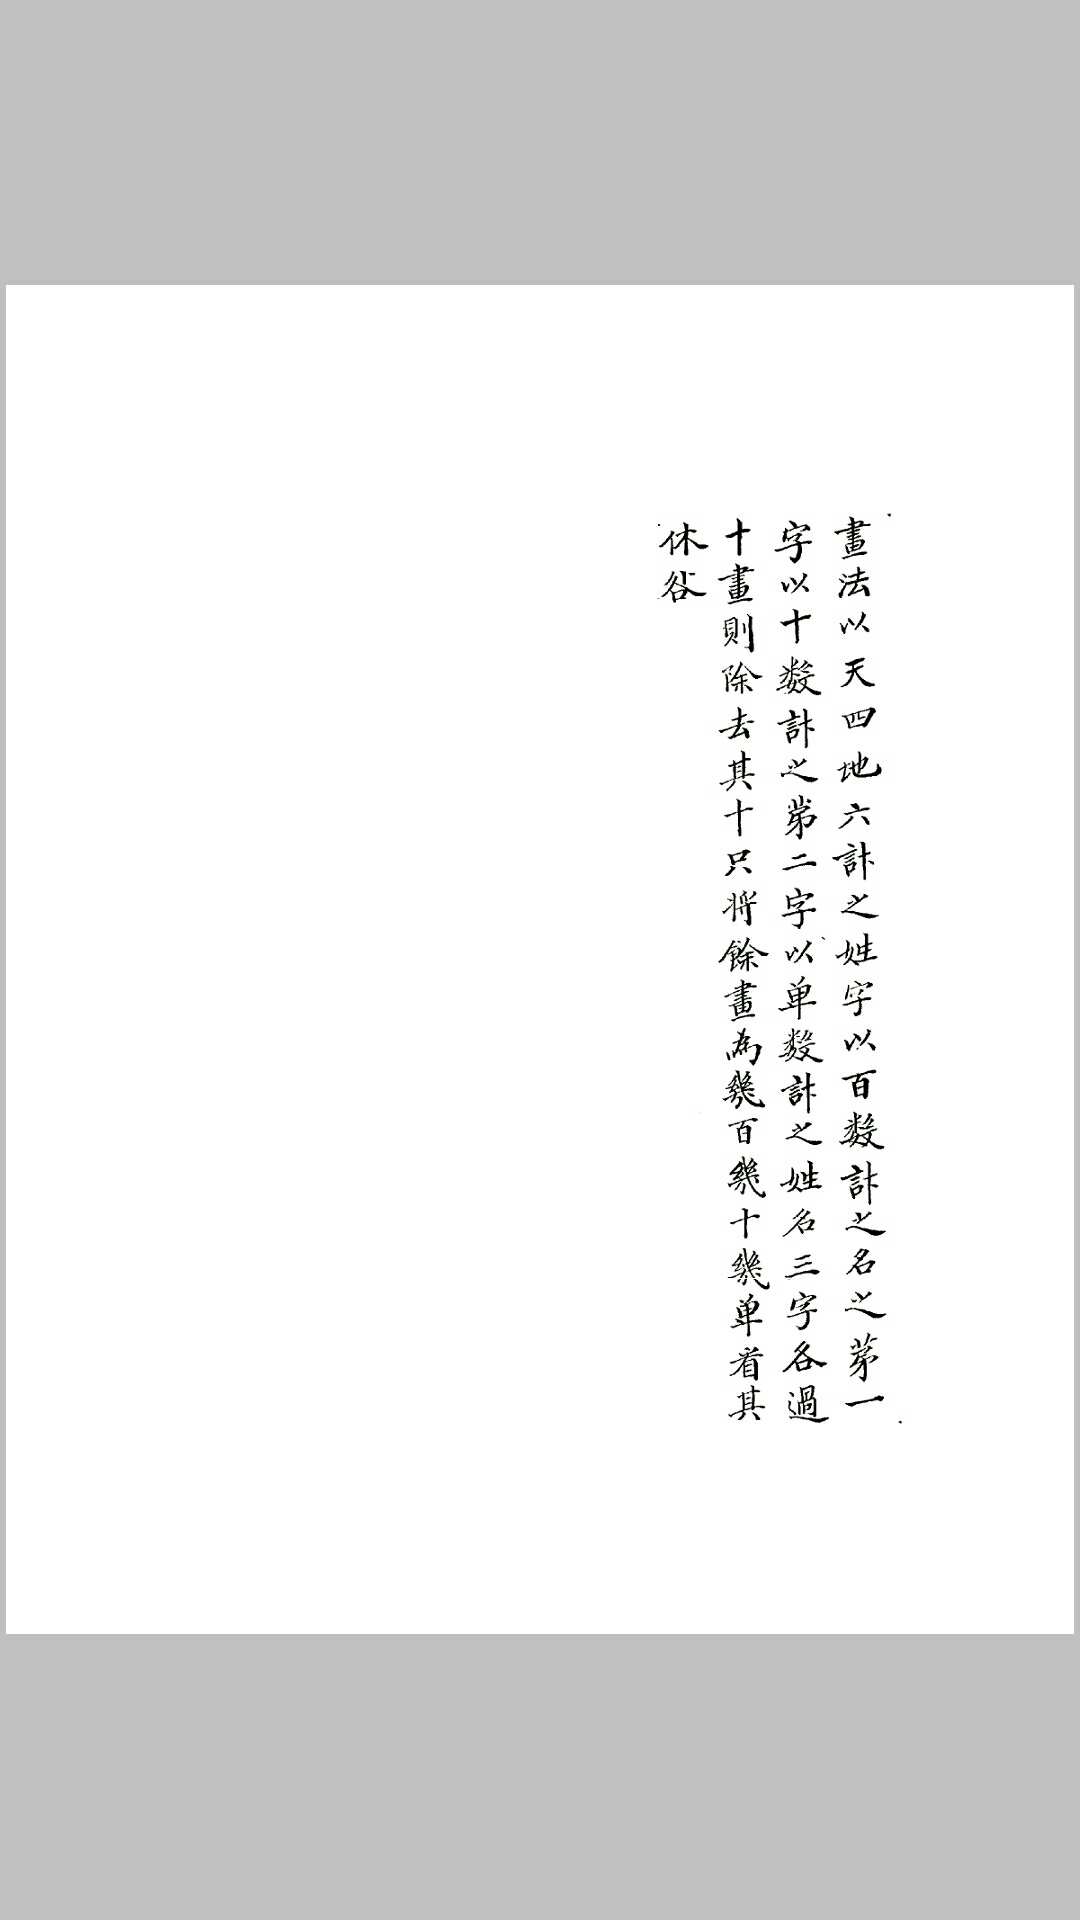 畫法以天四地六計之姓字以百数計之名之苐一
字以十数計之苐二字以单数計之姓名三字各過
十畫則除去其十只将餘畫為幾百幾十幾单看其
休咎